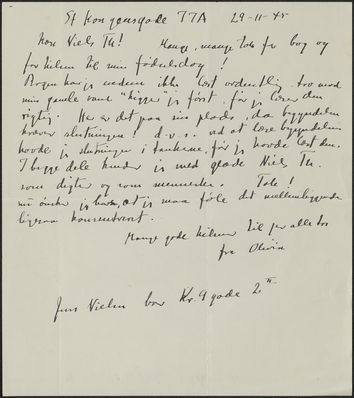 St Kongensgade 77A 29-11-45
Kære Niels Th! Mange, mange tak for bog og
for hilsen til min fødselsdag!
Bogen har jeg endnu ikke læst ordentlig, tro mod
min gamle vane "kigger" jeg først, før jeg læser den
rigtig. Her er det paa sin plads, da
kræver slutningen! d.v.s. ved at læse
havde jeg slutningen i tankerne, før jeg havde læst den.
I begge dele finder jeg med glæde Niels Th.
som digter og som menneske. Tak!
nu ønsker jeg bare, at jeg maa føle det mellemliggende
ligesaa koncentreret.
Mange gode hilsner til jer alle tre
fra Olivia
Jens Nielsen bor Kr. 9 gade 2 II